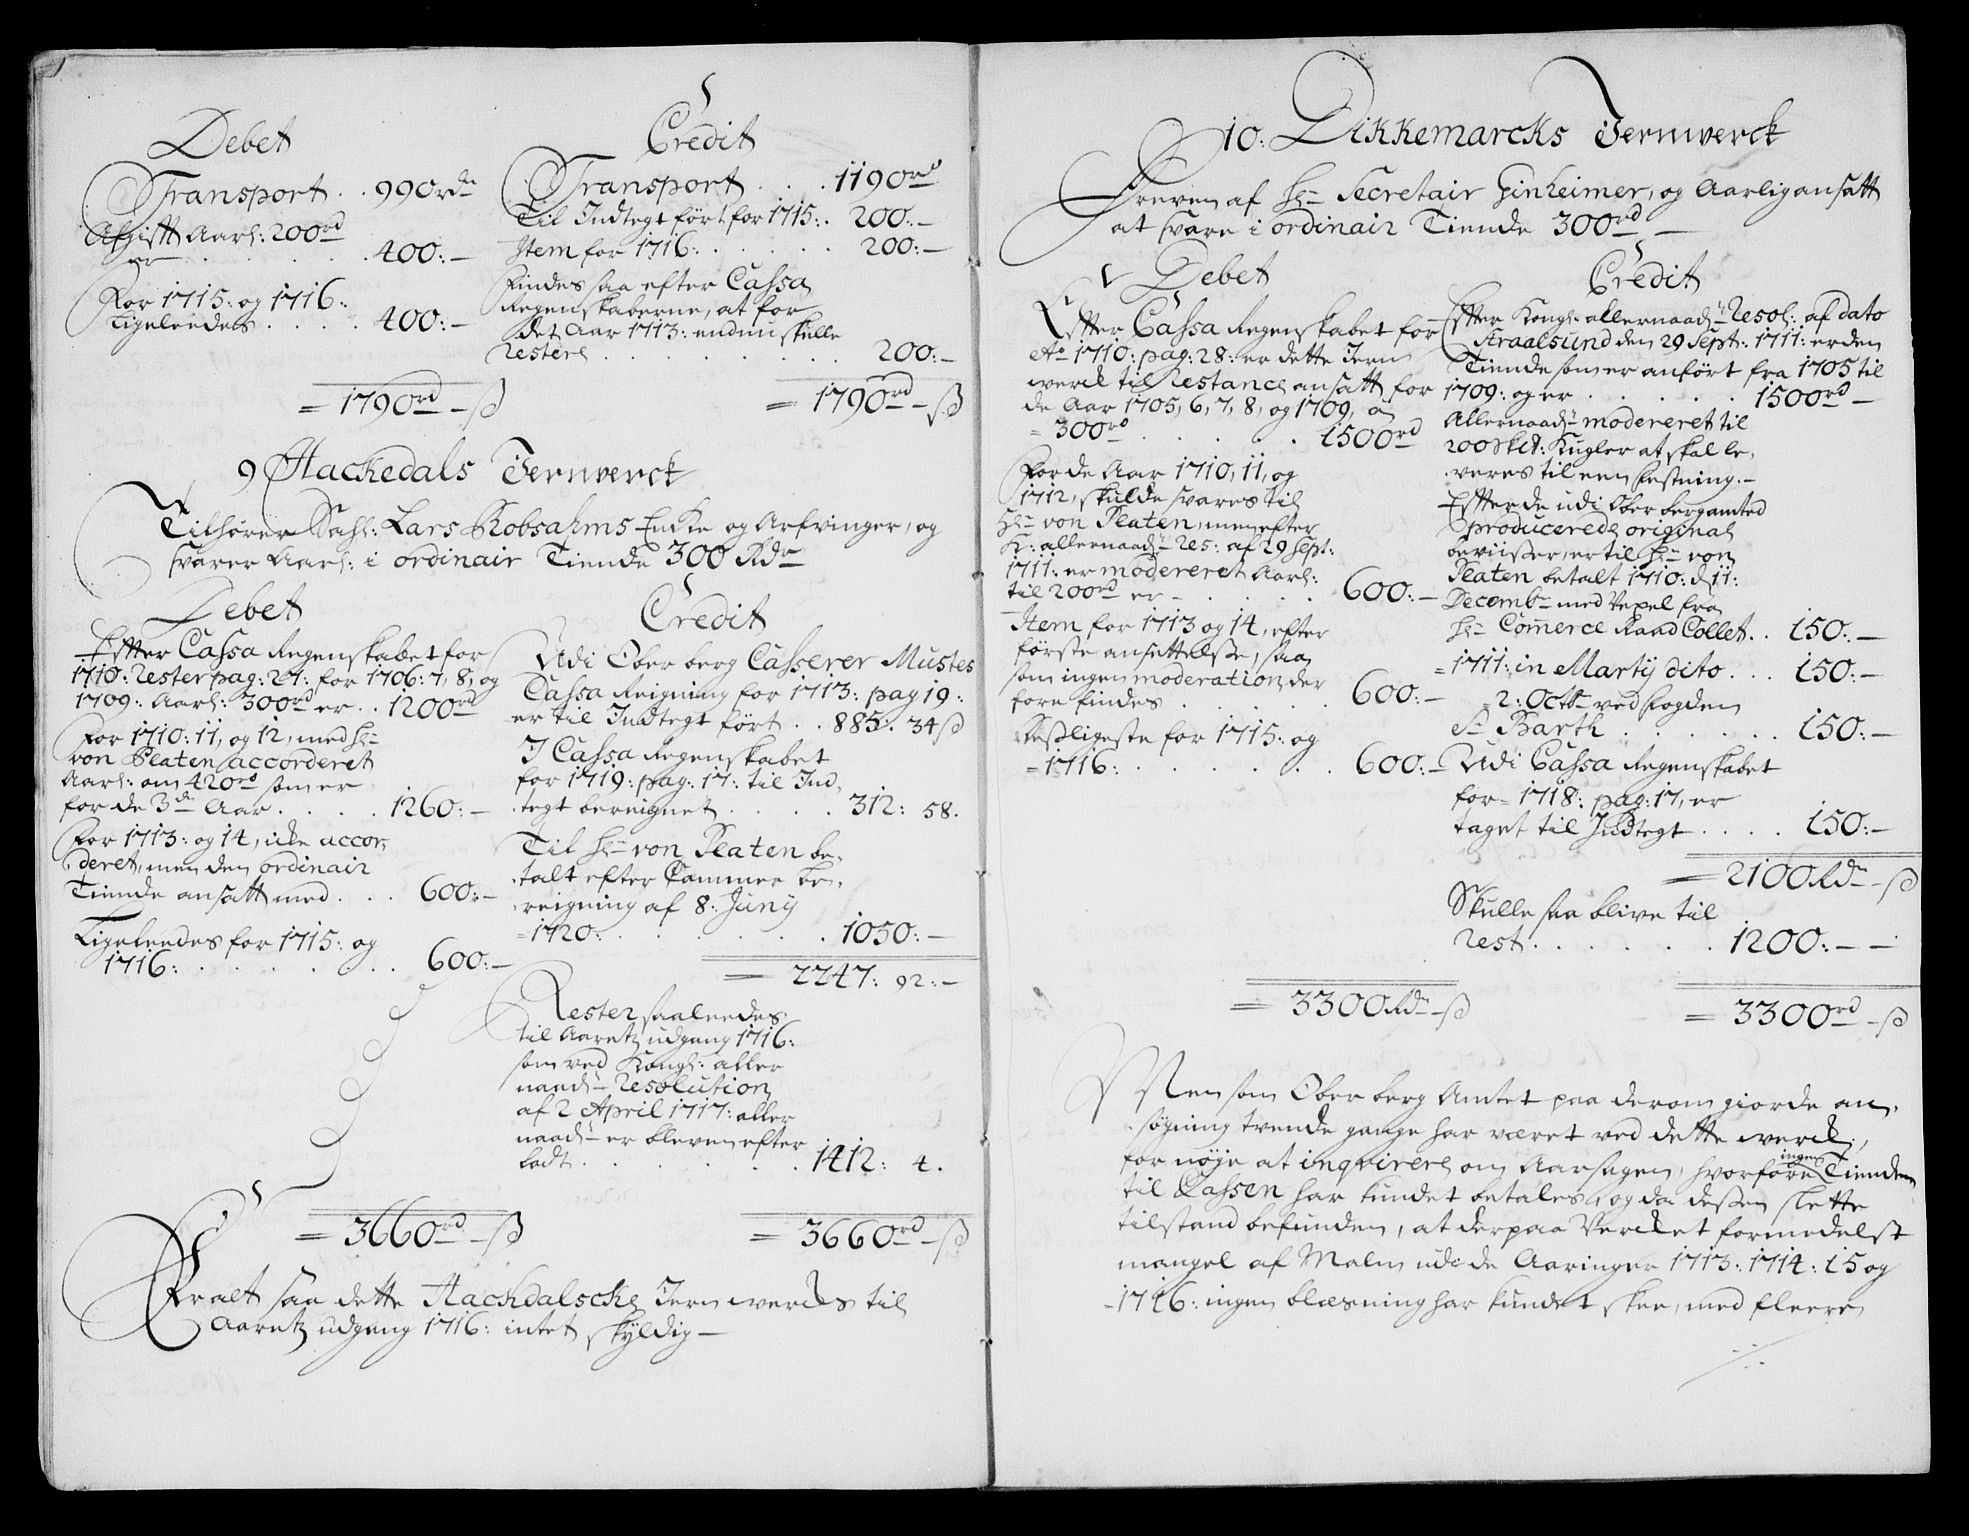 Debet
Transport . . 990rdr
Afgifft Aarl: 200rd
er . . . . . 400:-
For 1715: og 1716:
Ligeleedes . . . . 400:-
= 1790rd - ß
Credit
Transport . . . 1190rd
Til Indtegt ført for 1715: . 200:-
Item for 1716: . . . . 200:-
Findes saa efter Cassa
Regenskaberne, at for
det Aar 1713: endnu skulle
restere . . . . . . 200:-
= 1790rd - ß
9 Hackedals Jernverck
Tilhører Sahl: Lars Robsahms Encke og Arfvinger, og
svarer Aarl: i ordinair Tiende 300 Rdr
Debet
Effter Cassa Regenskabet for
1710: Rester pag: 27: for 1706: 7, 8, og
1709: Aarl: 300rd er . . 1200rd
For 1710: 11, og 12, med Hr
von Platen accorderet
Aarl: om 420rd som er
for de 3de Aar . . . . 1260:-
For 1713: og 14, icke accor,
deret, men den ordinair
Tiende ansatt med . . . 600:-
Ligeleedes for 1715: og
1716: . . . . . . . 600:-
= 3660rd - ß
Credit
Udi Ober berg Casserer Mustes
Cassa Reigning for 1713: pag 19:
er til Indtegt ført . . 885: 34 ß
I Cassa Regenskabet
for 1719: pag: 17: til Ind,
tegt bereignet . . . . 312: 58.
Til Hr von Platen be,
talt efter Cammer be,
reigning af 8: Junij
1720: . . . . . . 1050:-
= 2247: 92:-
Rester saaleedes
til Aaretz udgang 1716:
som ved Kongl: aller
naad: Resolution
af 2 April 1717: aller
naad: er bleven efter
ladt . . . . . . . 1412: 4.
= 3660rd - ß
Er alt saa dette Hackdalscke Jern wercks til
Aaretz udgang 1716: intet skyldig -
10: Dikkemarcks Jernverck
Dreven af Hr Secretair Ginheimer, og Aarlig ansatt
at svare i ordinair Tiende 300rd -
Debet
Effter Cassa Regenskabet for
Ao 1710: pag: 28: er dette Jern
werck til Restance ansatt for
de Aar 1705, 6, 7, 8, og 1709, a
= 300rd . . . . . 1500rd
For de Aar 1710, 11, og
1712, skulde svares til
Hr von Platen, men efter
K: allernaad: Res: af 29 Sept:
1711: er modereret Aarl:
til 200rd er - . . . . 600:-
Item for 1713 og 14, efter
første ansettelse, saa
som ingen moderation der
fore findes . . . . . 600:-
Desligeste for 1715: og
= 1716: . . . . . . 600:-
= 3300 Rdr - ß
Credit
Effter Kongl: allernaad: Resol: af dato
Straalsund den 29 Sept: 1711: er den
Tiende som er anført fra 1705 til
1709: og er . . . . . 1500rd -
Allernaad: modereret til
200 Skt: Kugler at skal le,
veres til een Festning. -
Effter de udi Ober bergamted
producerede original
beviisser, er til Hr von
Platen betalt 1710: d 11:
Decembr med Vexel fra
Hr Comerce Raad Collet . . 150:-
= 1711: in Martij dito . . . 150:-
= 2: Octbr ved Fogden
Sr Barth . . . . . . 150:-
Udi Cassa Regenskabet
for = 1718: pag: 17, er
taget til Indtegt . . . . 150:-
= 2100 Rdr - ß
Skulle saa blive til
Rest . . . . . . 1200:- -
= 3300rd - ß
Men som Ober berg Amtet paa derom giorde an,
søgning tvende gange har været ved dette werck,
for nøje at inqvirere om Aarsagen, hvorfore ingen Tienden
til Cassen har kundet betales, og da dessen slette
tilstand befunden, at der paa Vercket formedelst
mangel af Malm udi de Aaringer 1713: 1714: 15 og
-1716: ingen blæsning har kundet skee, med fleere